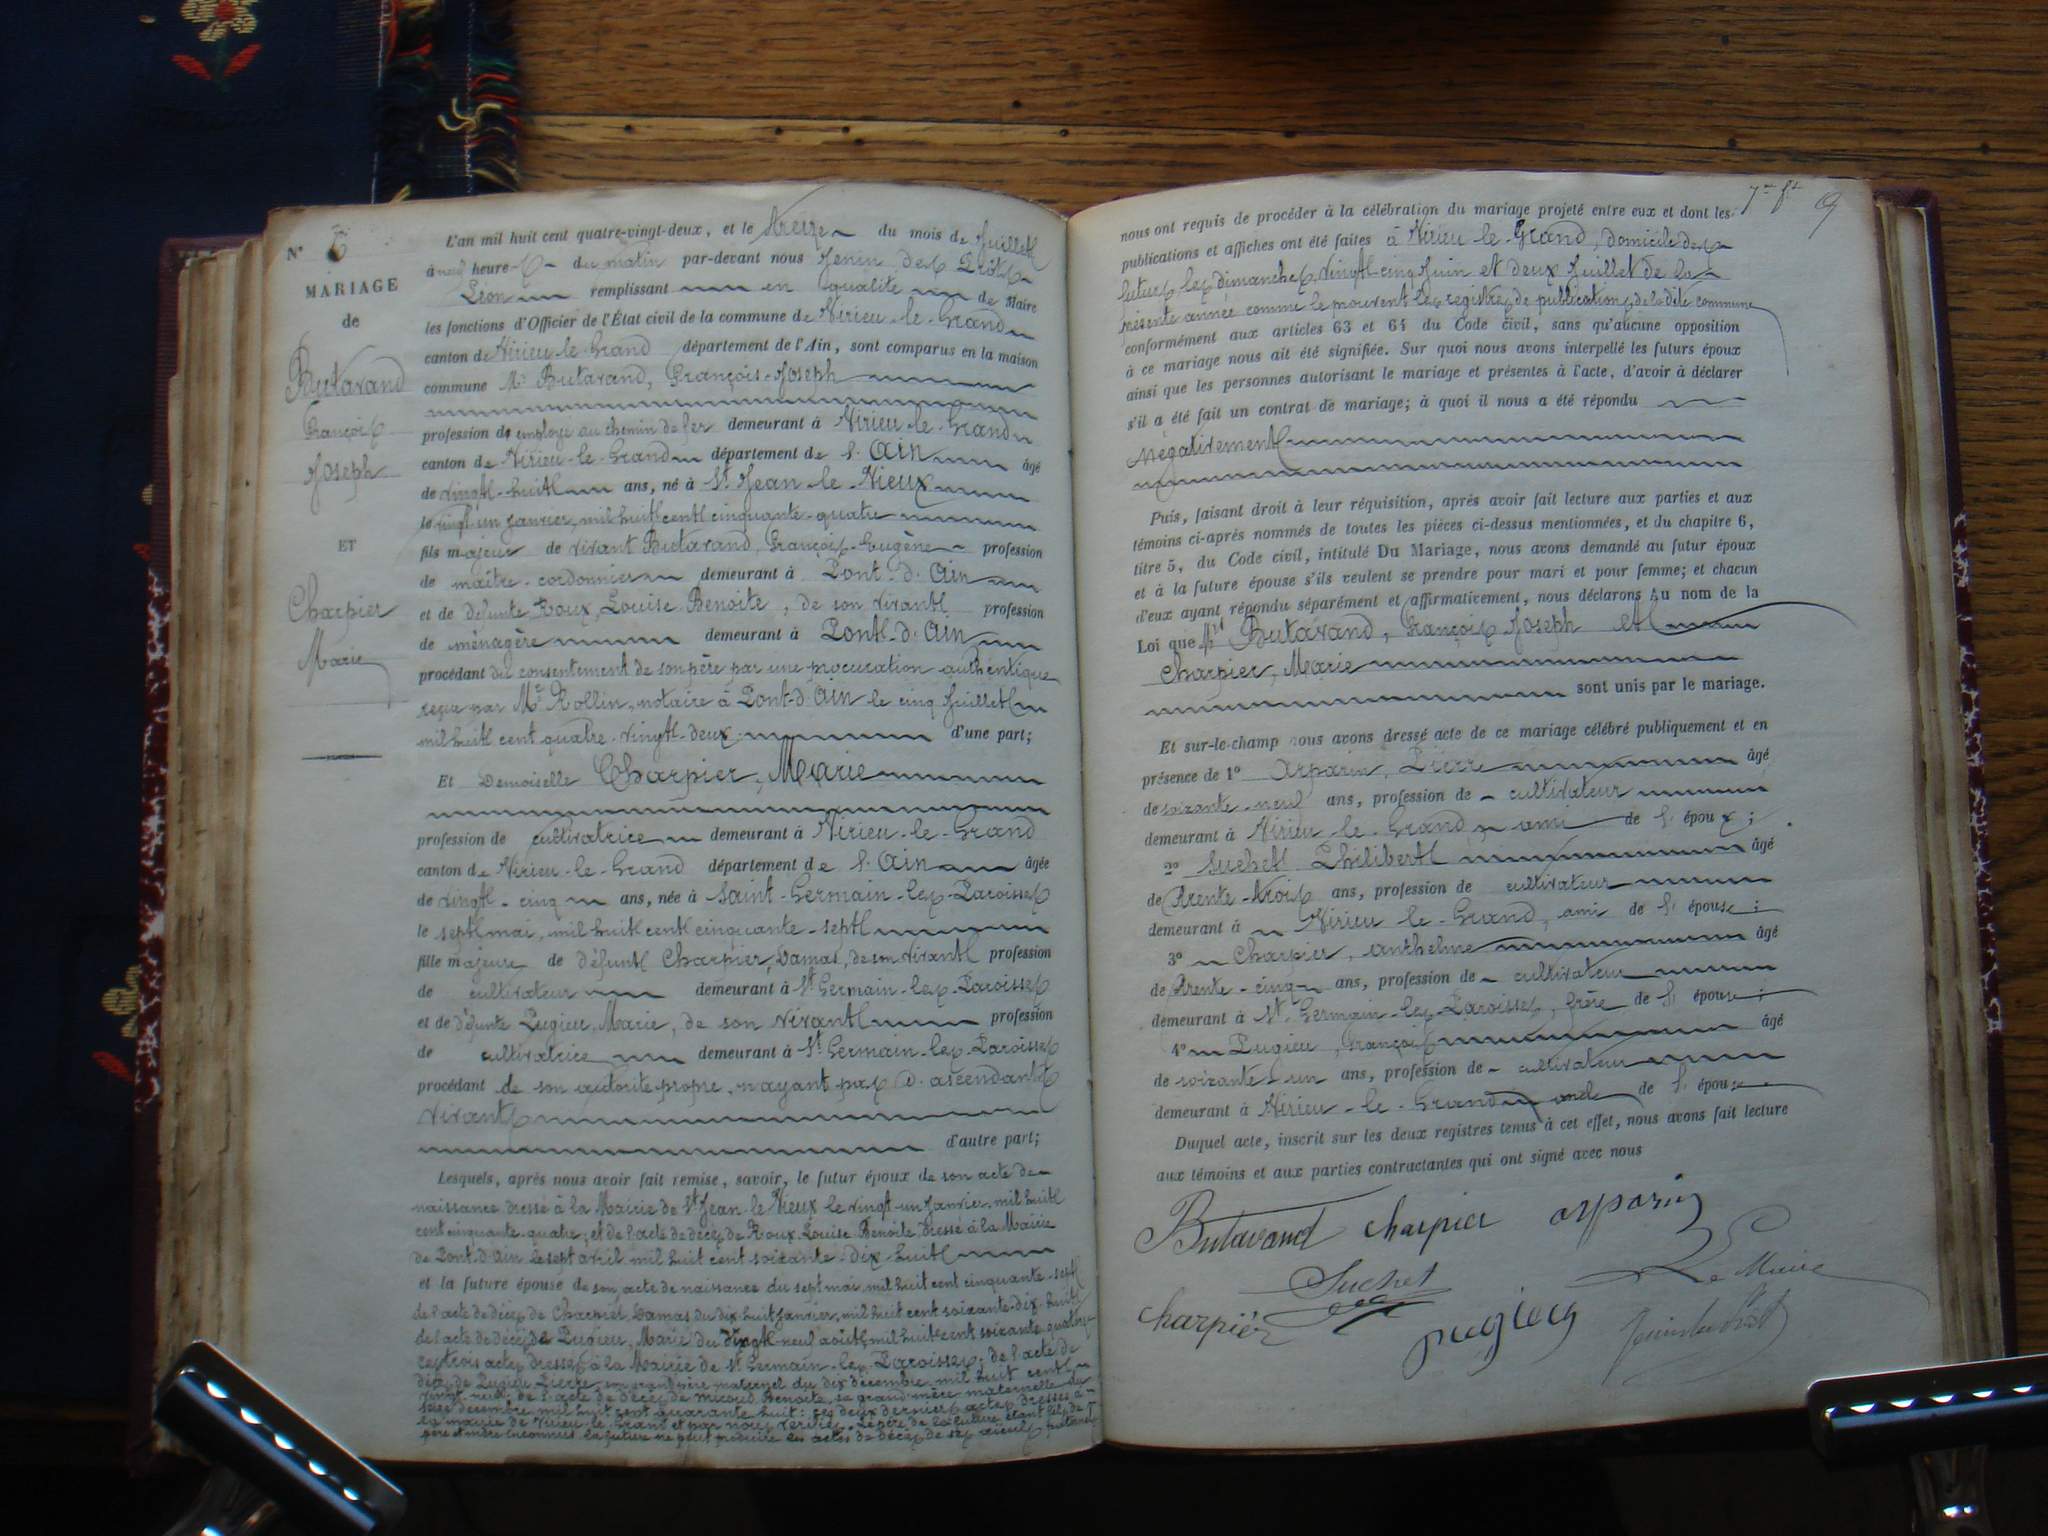 N° 6
MARIAGE
de
Butavand
François
Joseph
ET
Charpier
Marie
L'an mil huit cent quatre-vingt-deux, et le treize du mois de Juillet
à neuf heures du matin par-devant nous Jenin des Prôts
Léon remplissant en qualité de Maire
les fonctions d'Officier de l'État civil de la commune de Virieu-le-Grand
canton de Virieu-le-Grand département de l'Ain, sont comparus en la maison
commune Mr Butavand, François-Joseph
profession de employé au chemin de fer demeurant à Virieu-le-Grand
canton de Virieu-le-Grand département de l'Ain âgé
de vingt-huit ans, né à St Jean-le-Vieux
le vingt-un Janvier, mil huit cent cinquante-quatre
fils majeur de vivant Butavand, François-Eugène profession
de maître-cordonnier demeurant à Pont-d'Ain
et de défunte Roux, Louise-Benoite, de son vivant profession
de ménagère demeurant à Pont-d'Ain
procédant du consentement de son père par une procuration authentique
reçue par Me Rollin, notaire à Pont-d'Ain le cinq Juillet
mil huit cent quatre-vingt-deux d'une part;
Et Demoiselle Charpier, Marie
profession de cultivatrice demeurant à Virieu-le-Grand
canton de Virieu-le-Grand département de l'Ain âgée
de vingt-cinq ans, née à Saint-Germain-les-Paroisses
le sept mai, mil huit cent cinquante-sept
fille majeure de défunt Charpier, Damas, de son vivant profession
de cultivateur demeurant à St Germain-les-Paroisses
et de défunte Pugieu, Marie, de son vivant profession
de cultivatrice demeurant à St Germain-les-Paroisses
procédant de son autorité propre, n'ayant pas d'ascendants
vivants
d'autre part;
Lesquels, après nous avoir fait remise, savoir, le futur époux de son acte de
naissance dressé à la Mairie de St Jean-le-Vieux le vingt-un Janvier, mil huit
cent cinquante-quatre; et de l'acte de décès de Roux, Louise-Benoite, dressé à la Mairie
de Pont-d'Ain le sept avril mil huit cent soixante-dix-huit
et la future épouse de son acte de naissance du sept mai mil huit cent cinquante-sept
de l'acte de décès de Charpier, Damas du dix-huit Janvier, mil huit cent soixante-dix-huit
de l'acte de décès de Pugieu, Marie du vingt-neuf août, mil huit cent soixante-quatorze
ces trois actes dressés à la Mairie de St Germain-les-Paroisses; de l'acte de
décès de Pugieu, Pierre, son grand'père maternel du dix décembre, mil huit cent
vingt-neuf; de l'acte de décès de Micoud, Benoite, sa grand'mère maternelle du
seize décembre mil huit cent quarante-huit; ces deux derniers actes dressés à
la mairie de Virieu-le-Grand et par nous vérifiés. Le père de la future étant fils de
père et mère inconnus la future ne peut produire les actes de décès de ses aïeuls paternels
7me ft
nous ont requis de procéder à la célébration du mariage projeté entre eux et dont les
publications et affiches ont été faites à Virieu-le-Grand, domicile des
futurs les dimanches vingt-cinq Juin et deux Juillet de la
présente année comme le prouvent les registres de publications de la dite commune
conformément aux articles 63 et 64 du Code civil, sans qu'aucune opposition
à ce mariage nous ait été signifiée. Sur quoi nous avons interpellé les futurs époux
ainsi que les personnes autorisant le mariage et présentes à l'acte, d'avoir à déclarer
s'il a été fait un contrat de mariage; à quoi il nous a été répondu
négativement
Puis, faisant droit à leur réquisition, après avoir fait lecture aux parties et aux
témoins ci-après nommés de toutes les pièces ci-dessus mentionnées, et du chapitre 6,
titre 5, du Code civil, intitulé Du Mariage, nous avons demandé au futur époux
et à la future épouse s'ils veulent se prendre pour mari et pour femme; et chacun
d'eux ayant répondu séparément et affirmativement, nous déclarons au nom de la
Loi que Butavand, François Joseph et
Charpier, Marie
sont unis par le mariage.
Et sur-le-champ nous avons dressé acte de ce mariage célébré publiquement et en
présence de 1° Arparin, Pierre âgé
de soixante-neuf ans, profession de cultivateur
demeurant à Virieu-le-Grand ami de l'époux;
2° Suchet Philibert âgé
de trente-trois ans, profession de cultivateur
demeurant à Virieu-le-Grand, ami de l'épouse;
3° Charpier, Anthelme âgé
de trente-cinq ans, profession de cultivateur
demeurant à St Germain-les-Paroisses, frère de l'épouse;
4° Pugieu, François âgé
de soixante-un ans, profession de cultivateur
demeurant à Virieu-le-Grand oncle de l'épouse
Duquel acte, inscrit sur les deux registres tenus à cet effet, nous avons fait lecture
aux témoins et aux parties contractantes qui ont signé avec nous
Butavand charpier arparin
Suchet Le Maire
charpier pugieu